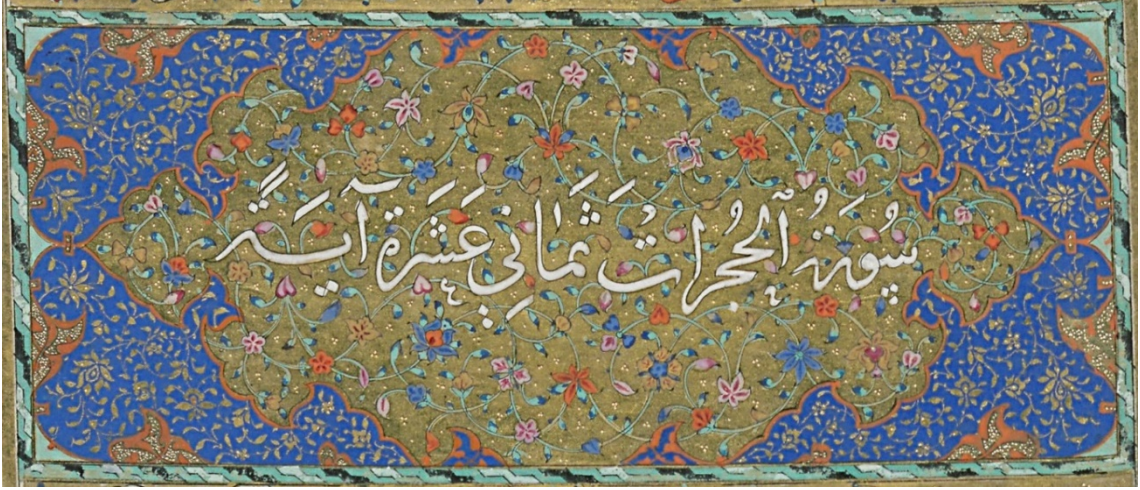 سُورَةُ ٱلْحُجُرَاتْ ثَمَانِي عَشَرَةَ آيَةً